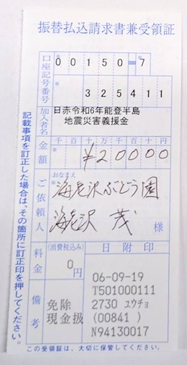 振替払込請求書兼受領証
口座記号番号
00150-7
325411
加入者名
日赤令和6年能登半島
地震災害義援金
金額
千 百 十 万 千 百 十 円
¥20000
ご依頼人
おなまえ
海老沢ぶどう園
海老沢 茂 様
料金
(消費税込み)
0円
日附印
備考
免除
現金扱
06-09-19
T501000111
2730 ユウチョ
(00841)
N94130017
記載事項を訂正した場合は、その箇所に訂正印を押してください。
この受領証は、大切に保管してください。